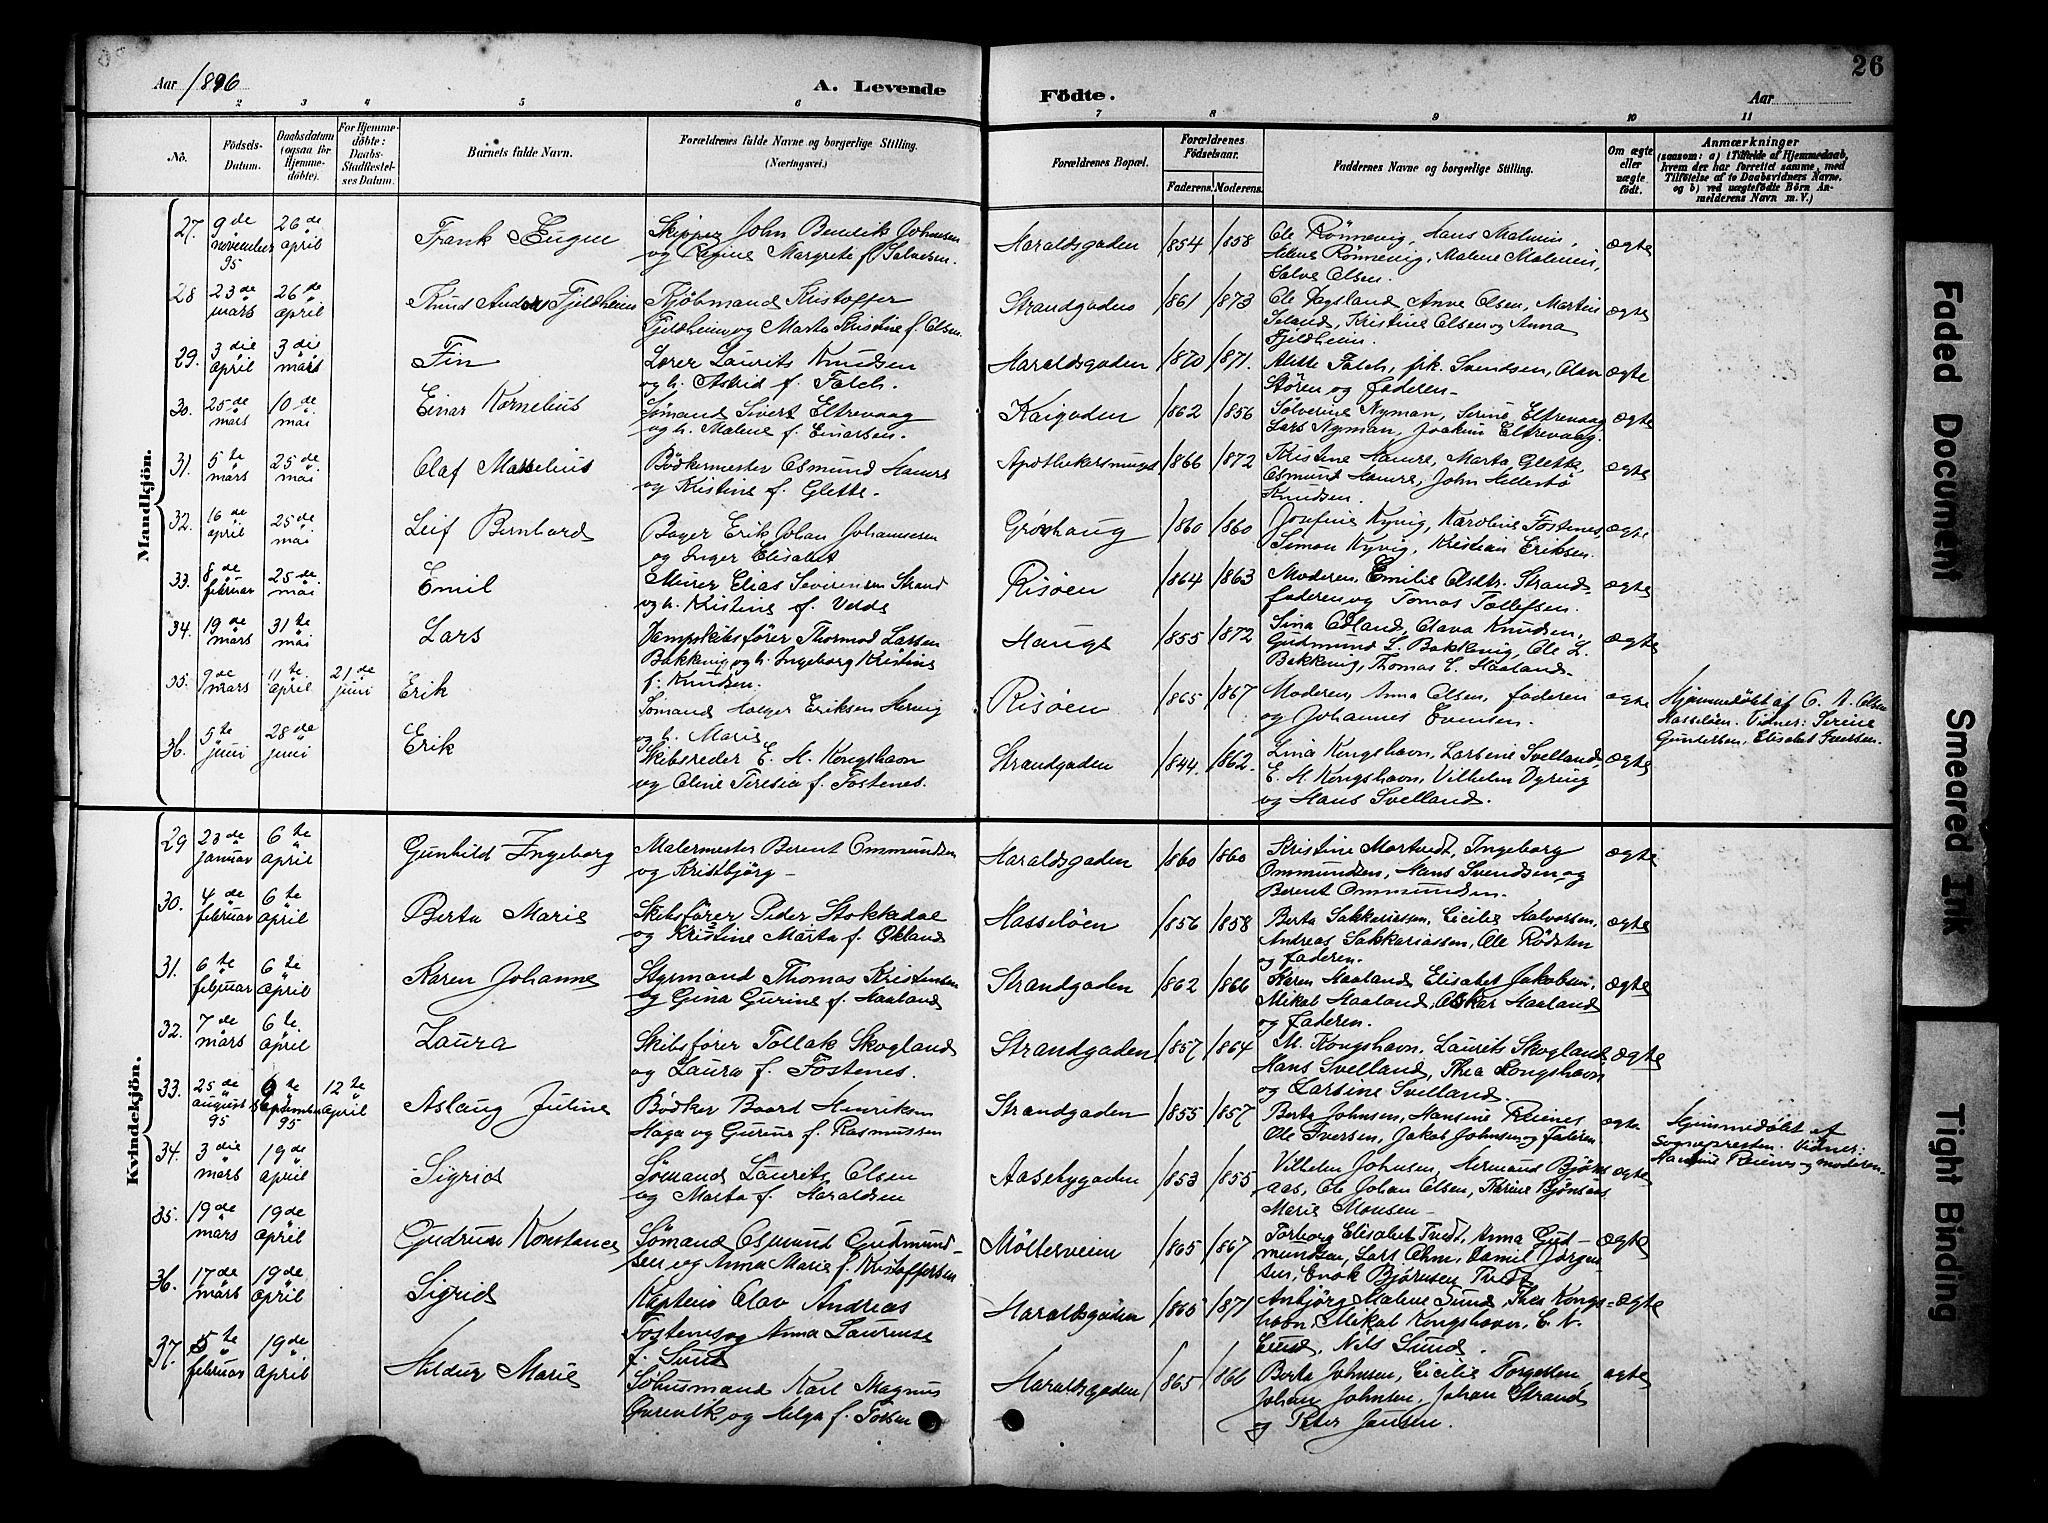 Aar 1896
A. Levende
Födte.
Aar
26
1 2 3 4 5 6 7 8 9 10 11
No.
Födsels-Datum.
Daabsdatum (ogsaa for Hjemme-döbte).
For Hjemme-döbte: Daabs-Stadfæstel-ses Datum.
Barnets fulde Navn.
Forældrenes fulde Navne og borgerlige Stilling. (Næringsvei.)
Forældrenes Bopæl.
Forældrenes Födselsaar.
Faderens. Moderens.
Faddernes Navne og borgerlige Stilling.
Om ægte eller uægte födt.
Anmærkninger
(saasom: a) i Tilfælde af Hjemmedaab, hvem der har forrettet samme, med Tilföielse af to Daabsvidners Navne, og b) ved uægtefödte Börn An-melderens Navn m. V.)
Mandkjön.
27. 9de november 95 26de april Frank Eugen Skipper John Bendik Johnsen og Regine Margrete f. Salvesen. Haraldsgaden 1854 1858 Ole Rönnevig, Hans Malmin, Helene Rönnevig, Malene Malmin, Salve Olsen. ægte
28 23de mars 26de april Knud Anders Fjeldheim Kjöbmand Kristoffer Fjeldheim og Marta Kristine f. Olsen. Strandgaden 1861 1873 Ole Dagsland Anne Olsen, Martin Seland, Kristine Olsen og Anna Fjeldheim. ægte
29. 3die april 3die mars Fin Lærer Laurits Knudsen og h. Astrid f. Falch. Haraldsgaden 1870 1871. Falch, frk. Svendsen, Olav Stören og faderen- ægte
30. 25de mars 10de mai Einar Kornelius Sömand Sivert Eltrevaag og h. Malene f. Einarsen. Kaigaden 1862 1856 Sölverine Nyman, Serine Eltrevaag Lars Nyman, Joakim Eltrevaag. ægte
31. 5te mars 25de mai Olaf Marselius Bödkermester Osmund Hamre og Kristine f. Glette. Apothekersmuget 1866 1872 Kristine Hamre, Marta Glette, Osmund Hamre, John Hellestö Knudsen. ægte
32. 16de april 25de mai Leif Bernhard Bager Erik Johan Johannesen og Inger Elisabet Grönhaug 1860 1860 Josefine Kyvig, Karoline Fostenes, Simon Kyvig, Kristian Eriksen. ægte
33. 8de februar 25de mai Emil Murer Elias Severinsen Strand og h. Kristine f. Velde Risöen 1864 1863 Moderen, Emilie Olsdtr. Strand faderen og Tomas Tollefsen. ægte
34. 19de mars 31te mai Lars Dempskibsförer Thormod Larsen Bakkevig og h. Ingeborg Kristine f. Knudsen. Hauge 1855 1872 Sina Ödland, Olava Knudsen, Gudmund L. Bakkevig, Ole L. Bekkevig, Thomas E. Haaland. ægte
35. 9de mars 11te april 21de juni Erik Sömand Holger Eriksen Hervig og h. Marie Risöen 1865 1867 Moderen, Anna Olsen, faderen og Johannes Evensen. ægte Hjemmedöbt af O. A. Olsen Hasselöen. Vidner: Serine Gundersen, Elisabet Iversen.
36. 5te juni 28de juni Erik Skibsreder E. H. Kongshavn og Oline Teresia f. Fostenes. Strandgaden 1844. 1862. Lina Kongshavn, Larsine Svelland, E. H. Kongshavn, Vilhelm Dyring og Hans Svelland. ægte
Kvindekjön.
29 23de januar 6te april Gunhild Ingeborg Malermester Berent Ommundsen og Kristbjörg - Haraldsgaden 1860 1860 Kristine Mortvedt, Ingeborg Ommundsen, Hans Svendsen og Berent Ommundsen. ægte
30. 4de februar 6te april Berta Marie Skibsförer Peder Stokkedal og Kristine Marta f. Ökland Hasselöen 1856 1858 Berta Sakkariassen, Cicilie Halvorsen, Andreas Sakkariassen, Ole Rödsten og faderen. ægte
31. 6te februar 6te april Karen Johanne Styrmand Thomas Kristensen og Gina Gurine f. Haaland Strandgaden 1862 1866 Karen Haaland, Elisabet Jakobsen, Mikal Haaland, Oskar Haaland og faderen. ægte
32. 7de mars 6te april Laura Skibsförer Tollak Skogland og Laura f. Fostenes. Strandgaden 1857 1864 M. Kongshavn, Laurits Skogland, Hans Svelland, Thea Kongshavn og Larsine Svelland. ægte
33. 25de august 95 6te september 95 12te april Aslaug Juline Bödker Baard Henriksen Haga og Gurine f. Rasmussen Strandgaden 1855 1857 Berta Johnsen, Hansine Reines Ole Iversen, Jakob Johnsen og faderen. ægte Hjemmedöbt af Sognepresten. Vidner: Hansine Reines og moderen.
34. 3die mars 19de april Sigrid Sömand Laurits Olsen og Marta f. Haraldsen Aasebygaden 1853 1855 Vilhelm Johnsen, Hermand Bjönsaas, Ole Johan Olsen, Terine Bjönsaas Marie Monsen- ægte
35. 19de mars 19de april Gudrun Konstance Sömand Osmund Gudmundsen og Anna Marie f. Kristoffersen Möllerveien 1865 1867 Torborg Elisabet Tvedt, Anna Gudmundsen, Lars Ohm, Daniel Jörgensen, Enok Björnsen Tvedt ægte
36. 17de mars 19de april Sigrid Kaptein Olav Andreas Fostenes og Anna Laurense f. Sund Haraldsgaden 1865 1871 Anbjörg Malene Sund, Thea Kongshavn, Mikal Kongshavn, E. N. Sund, Nils Sund. ægte
37. 5te februar 19de april Hildur Marie Söhusmand Karl Magnus og Helga f. Fossen Haraldsgaden 1865 1866 Berta Johnsen, Cecilie Torgersen, Johan Johnsen, Johan Strand og Peter Jansen. ægte
Faded Document
Smeared Ink
Tight Binding